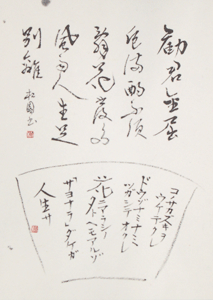 勸君金屈
卮満酌不須
辞花發多
風雨人生足
別離
コノサカズキヲ
ウケテクレ
ドウゾナミナミ
ツガシテオクレ
花ニアラシノ
タトヘモアルゾ
サヨナラダケガ
人生サ